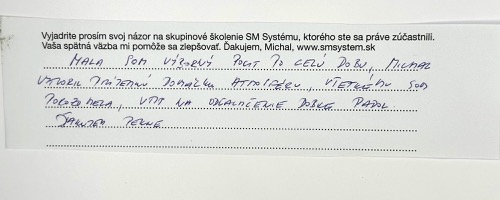 Vyjadrite prosím svoj názor na skupinové školenie SM Systému, ktorého ste sa práve zúčastnili.
Vaša spätná väzba mi pomôže sa zlepšovať. Ďakujem, Michal, www.smsystem.sk
MALA SOM VÝBORNÝ POCIT PO CELÚ DOBU, MICHAL
VYTVORIL PRÍJEMNÚ DOMÁCKU ATMOSFÉRU, VŠETKÉMU SOM
POROZUMELA, VTIP NA ODĽAHČENIE DOBRE PADOL.
ĎAKUJEM PEKNE